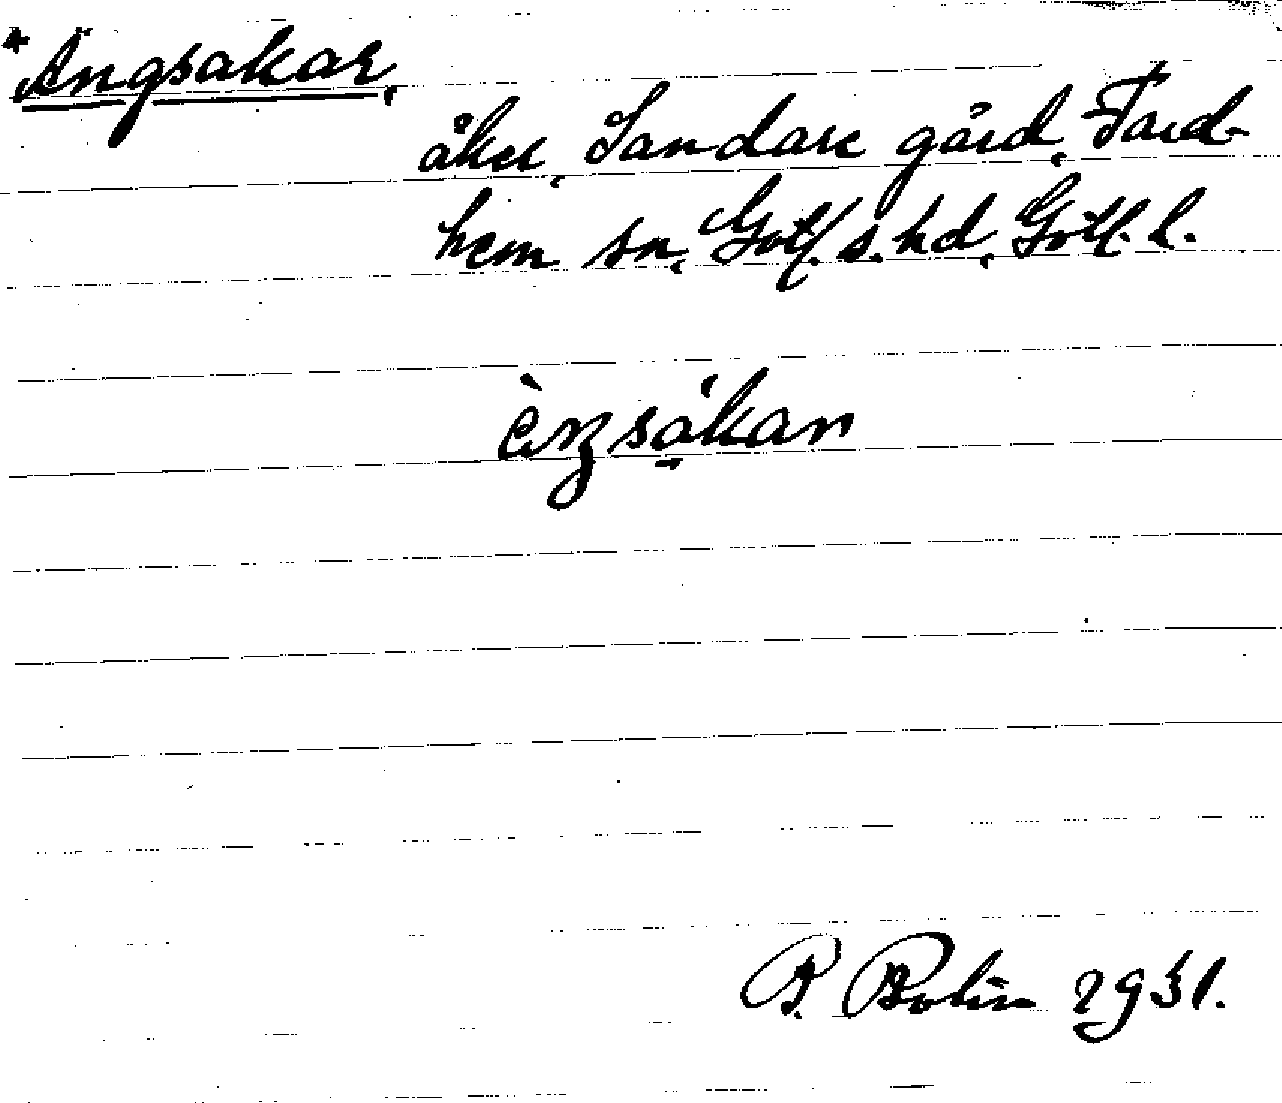 *Ängsakar,
åker, Sandare gård, Fard-
hem sn, Gotl. s. hd, Gotl. l.
èŋsakan
P. Bolin 1931.